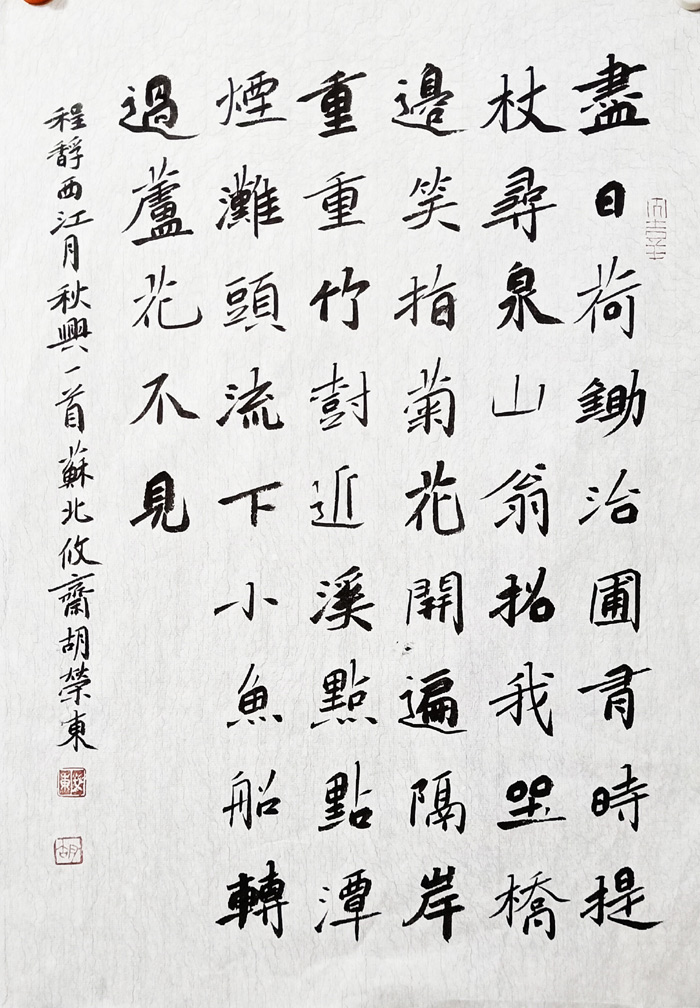 盡日荷鋤治圃有時提
杖尋泉山翁招我坐橋
邊笑指菊花開遍隔岸
重重竹樹近溪點點潭
煙灘頭流下小魚船轉
過蘆花不見
程馞西江月秋興一首蘇北攸齋胡榮東
胡